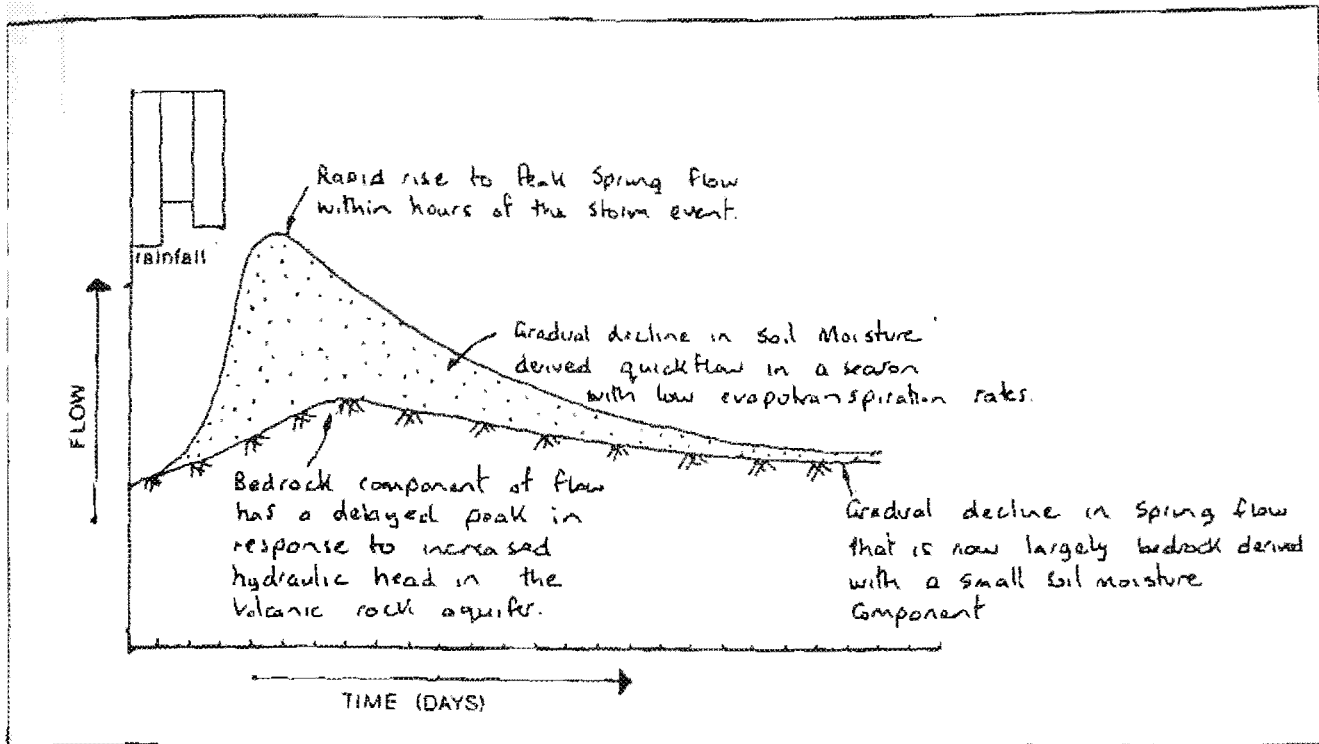 Rapid rise to Peak Spring flow
within hours of the storm event.
rainfall
Gradual decline in Soil Moisture
derived quickflow in a season
with low evapotranspiration rates.
FLOW
Bedrock component of flow
has a delayed peak in
response to increased
hydraulic head in the
Volcanic rock aquifer.
Gradual decline in Spring flow
that is now largely bedrock derived
with a small soil moisture
Component
TIME (DAYS)